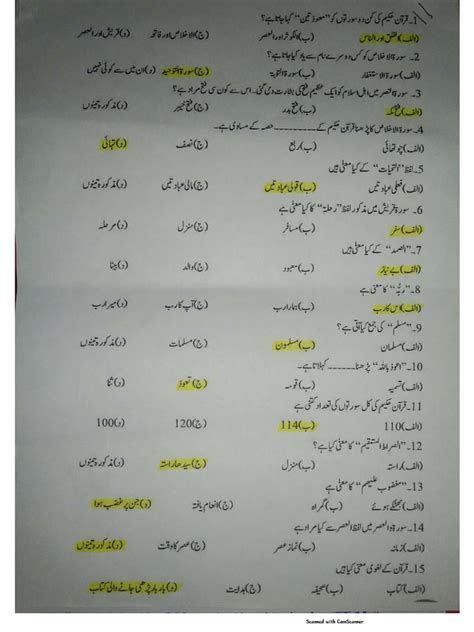 1۔ قرآن حکیم کی کن دو سورتوں کو "معوذتین" کہا جاتا ہے؟
(الف) الفلق اور الناس (ب) الکوثر اور العصر (ج) الاخلاص اور فاتحہ (د) قریش اور العصر
2۔ سورۃ الاخلاص کو کس دوسرے نام سے یاد کیا جاتا ہے؟
(الف) سورۃ الاستغفار (ب) سورۃ التوبۃ (ج) سورۃ التوحید (د) ان میں سے کوئی نہیں
3۔ سورۃ النصر میں اہل اسلام کو ایک عظیم فتح کی بشارت دی گئی۔ اس سے کون سی فتح مراد ہے؟
(الف) فتح مکہ (ب) فتح بدر (ج) فتح خیبر (د) مذکورہ تینوں
4۔ سورۃ الاخلاص کا پڑھنا قرآن حکیم کے ــــــــــــ حصہ کے مساوی ہے۔
(الف) چوتھائی (ب) ربع (ج) نصف (د) تہائی
5۔ لفظ "التحیات" کے کیا معنٰی ہیں
(الف) فعلی عبادتیں (ب) قولی عبادتیں (ج) مالی عبادتیں (د) مذکورہ تینوں
6۔ سورۃ قریش میں مذکور لفظ "رحلۃ" کا کیا معنٰی ہے
(الف) سفر (ب) مسافر (ج) منزل (د) مرحلہ
7۔ "الصمد" کے کیا معنٰی ہیں
(الف) بے نیاز (ب) معبود (ج) والد (د) بیٹا
8۔ "ربُّہٗ" کا معنٰی ہے
(الف) اس کا رب (ب) ہمارا رب (ج) آپ کا رب (د) میرا رب
9۔ "مسلم" کی جمع کیا آتی ہے؟
(الف) مسلمان (ب) مسلمون (ج) مسلمات (د) مذکورہ تینوں
10۔ "اعوذ باللہ" پڑھنا ــــــــــــ کہلاتا ہے۔
(الف) تسمیہ (ب) قومہ (ج) تعوذ (د) ثنا
11۔ قرآن حکیم کی کل سورتوں کی تعداد کتنی ہے
(الف) 110 (ب) 114 (ج) 120 (د) 100
12۔ "الصراط المستقیم" کا معنٰی کیا ہے؟
(الف) راستہ (ب) منزل (ج) سیدھا راستہ (د) مذکورہ تینوں
13۔ "مغضوب علیہم" کا معنٰی ہے
(الف) بھٹکے ہوئے (ب) گمراہ (ج) انعام یافتہ (د) جن پر غضب ہوا
14۔ سورۃ العصر میں لفظ العصر سے کیا مراد ہے
(الف) زمانہ (ب) نماز عصر (ج) عصر کا وقت (د) مذکورہ تینوں
15۔ قرآن کے لغوی معنٰی کیا ہیں
(الف) کتاب (ب) صحیفہ (ج) ہدایت (د) بار بار پڑھی جانے والی کتاب
Scanned with CamScanner